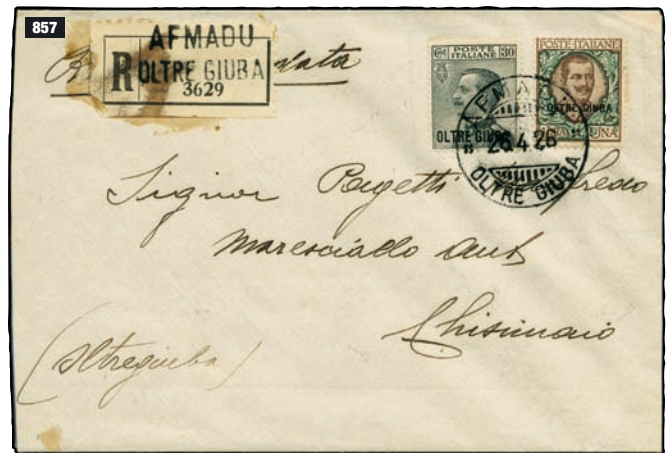 857
AFMADU
R OLTRE GIUBA
3629
POSTE ITALIANE 30
OLTRE GIUBA
POSTE·ITALIANE
OLTRE GIUBA
UNA
26 4 26
OLTRE GIUBA
Signor
Maresciallo Aut
Chisimaio
(Oltregiuba)